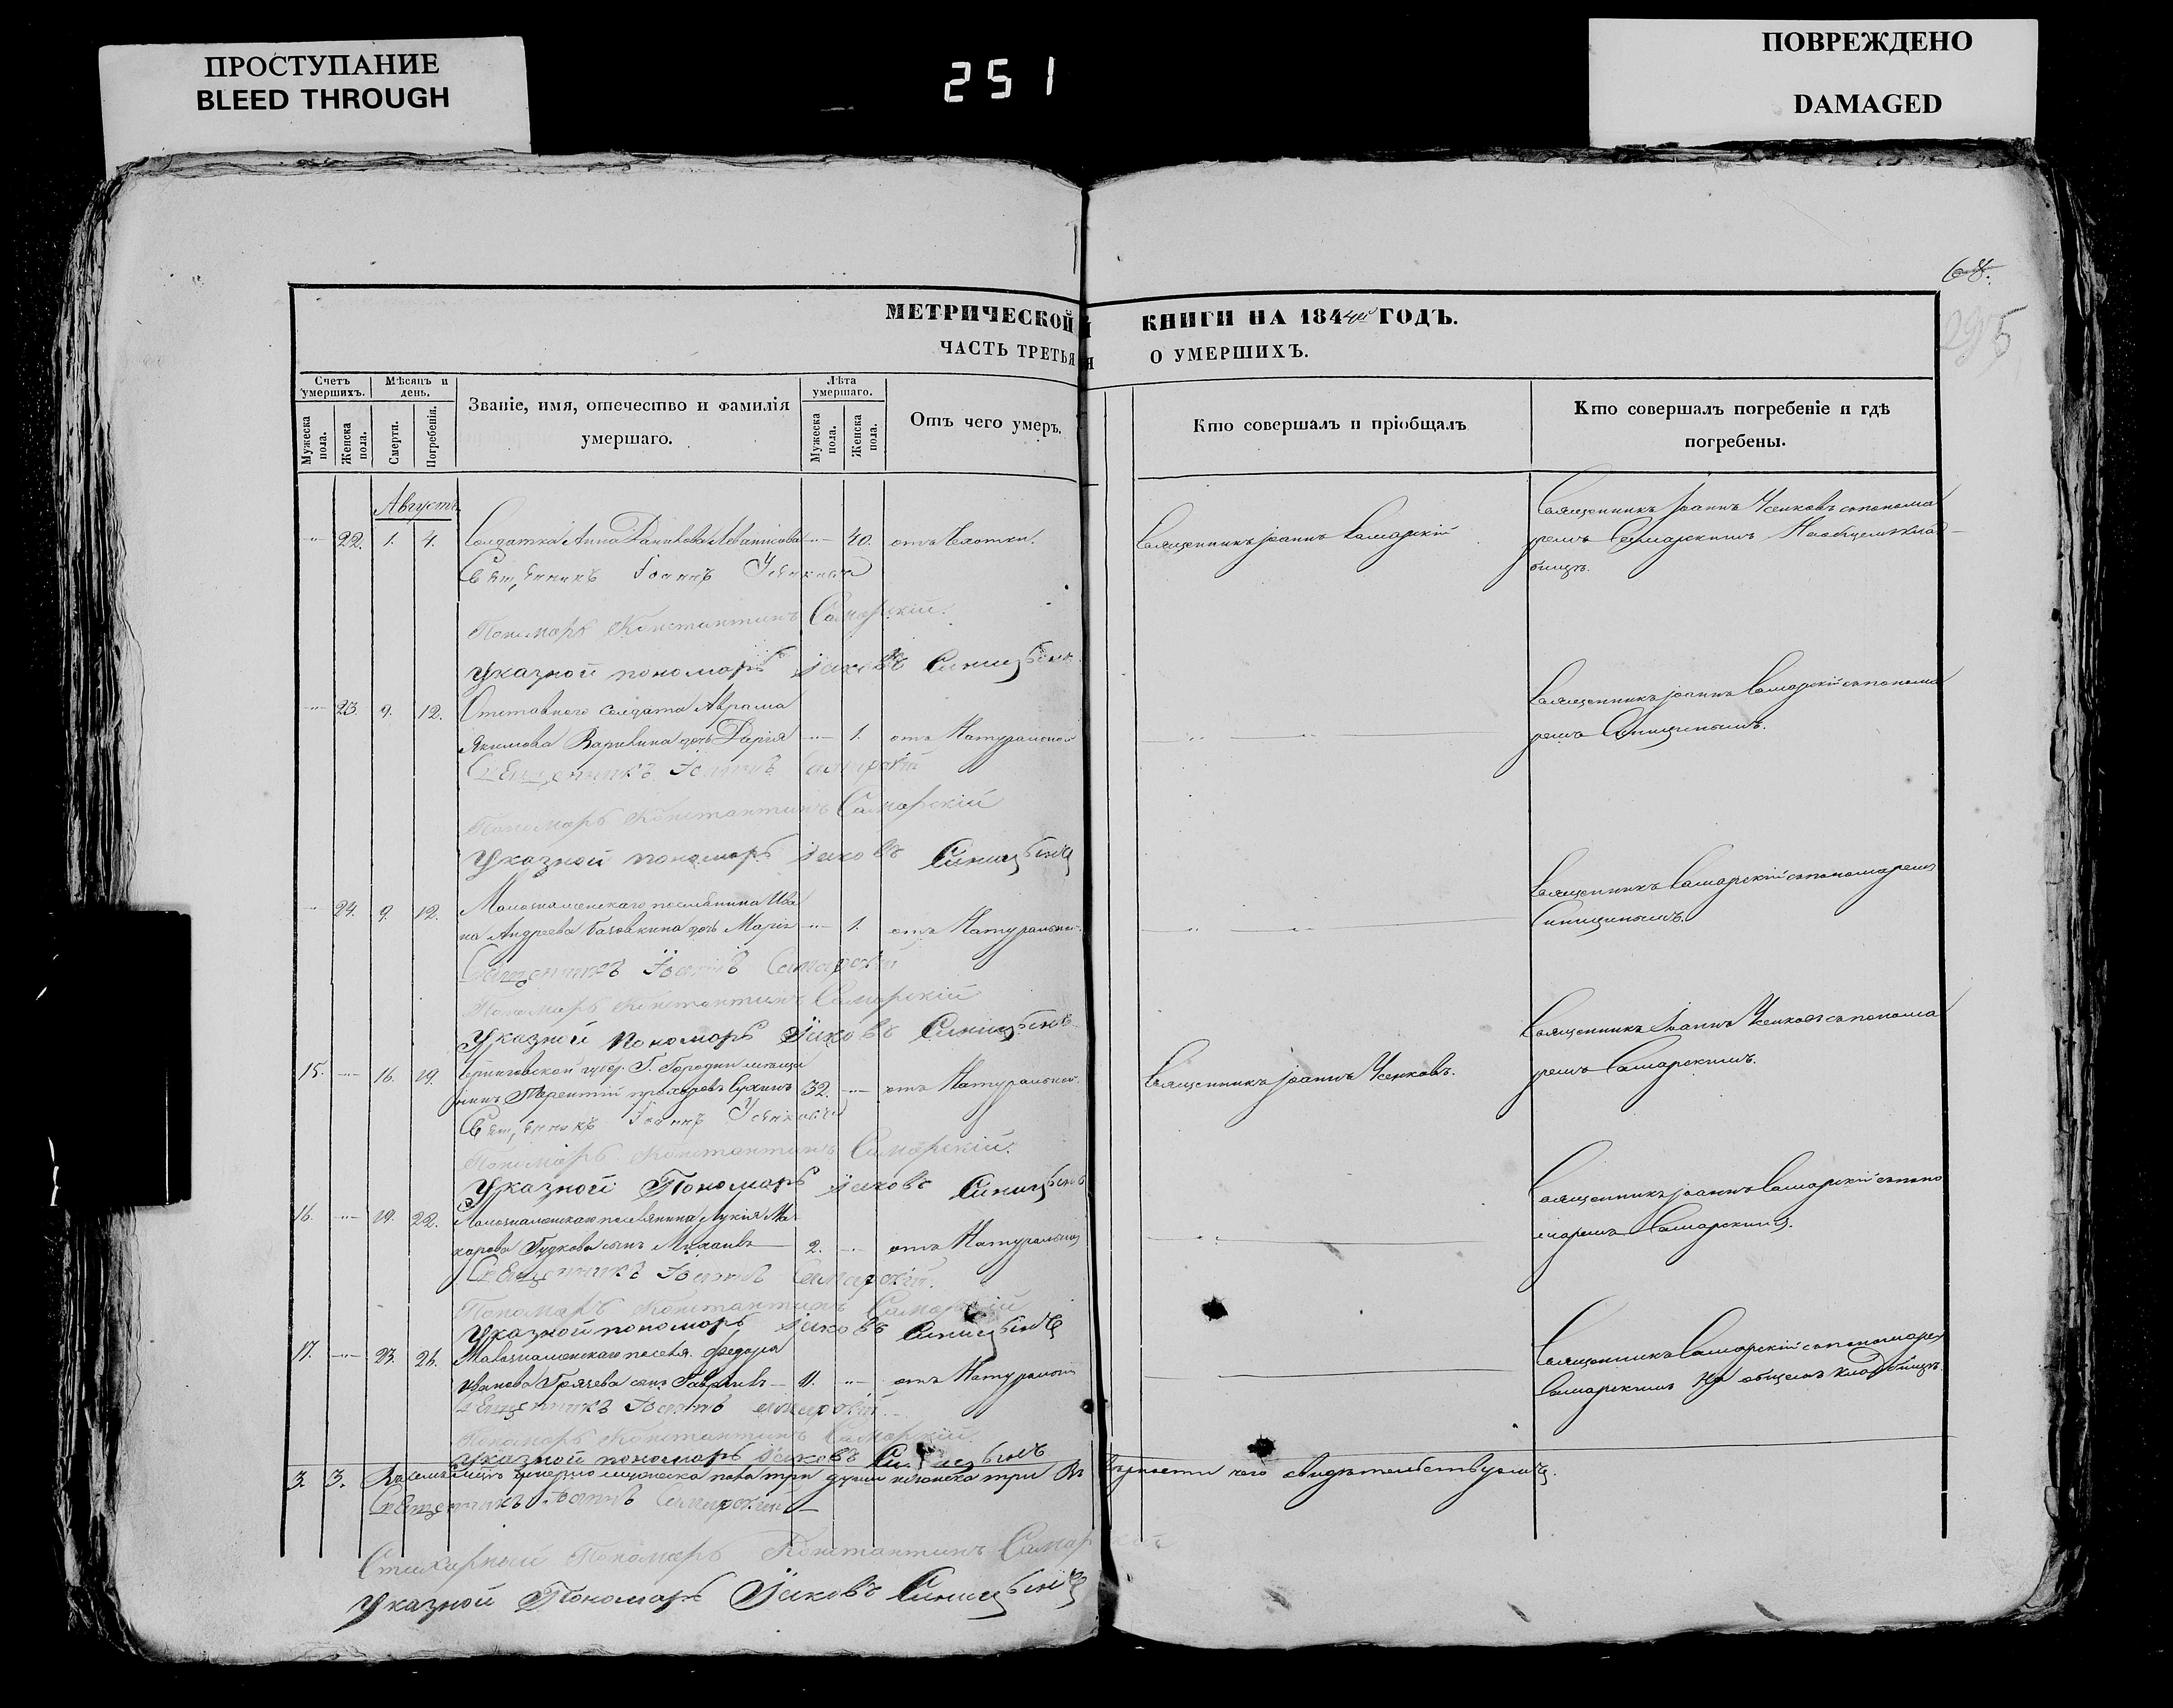 ПРОСТУПАНИЕ
BLEED THROUGH
251
ПОВРЕЖДЕНО
DAMAGED
68.
295
МЕТРИЧЕСКОЙ КНИГИ НА 1844й ГОДЪ.
ЧАСТЬ ТРЕТЬЯ О УМЕРШИХЪ.
Счетъ умершихъ.
Мужеска пола.
Женска пола.
Мѣсяцъ и день.
Смерти.
Погребенія.
Званіе, имя, отечество и фамилія умершаго.
Лѣта умершаго.
Мужеска пола.
Женска пола.
Отъ чего умеръ.
Кто совершалъ и пріобщалъ
Кто совершалъ погребеніе и гдѣ погребены.
Августъ
Священникъ Іоаннъ Усенковъ с понома
22. 1. 4. Солдатка Анна 40. отъ Чахотки. Священникъ іоаннъ Самарскій ремъ Самарскимъ На общемъ клад
бищѣ.
Священникъ Іоаннъ Усенковъ
Пономарь Константинъ Самарскій.
Указной пономарь Іаковъ Синицынъ
Священникъ іоаннъ Самарскій с понома
23. 9. 12. Отставного солдата Аврама
Якимова дочь Дарія 1. отъ Натуральной ремъ Синицынымъ.
Священникъ Іоаннъ Самарскій
Пономарь Константинъ Самарскій
Указной пономарь Іаковъ Синицынъ
Священникъ Самарскій с пономаремъ
24. 9. 12. поселянина Ива
на Андреева дочь Марія 1. отъ Натуральной Синицынымъ.
Священникъ Іоаннъ Самарскій
Пономарь Константинъ Самарскій
Указной Пономарь Іаковъ Синицынъ
Священникъ Іоаннъ Усенковъ с понома
15. 16. 19. Черниговской губер. Г. Городни мѣща
нинъ Терентій Прохоровъ 32. отъ Натуральной. Священникъ іоаннъ Усенковъ. ремъ Самарскимъ.
Священникъ Іоаннъ Усенковъ
Пономарь Константинъ Самарскій.
Указной Пономарь Іаковъ Синицынъ
Священникъ іоаннъ Самарскій с поно
16. 19. 22. поселянина Ма
карова Гудкова сынъ Михаилъ 2. отъ Натуральной маремъ Самарскимъ.
Священникъ Іоаннъ Самарскій.
Пономарь Константинъ Самарскій
Указной пономарь Іаковъ Синицынъ
Священникъ Самарскій с пономаремъ
17. 23. 26. Федора
Иванова сынъ Гавріилъ отъ Натуральной Самарскимъ На общемъ кладбищѣ.
Священникъ Іоаннъ Самарскій
Пономарь Константинъ Самарскій.
Указной пономарь Іаковъ Синицынъ
3. 3. мужеска пола три души женска три Въ вѣрности чего свидѣтельствуемъ.
Священникъ Іоаннъ Самарскій
Стихарный Пономарь Константинъ Самарскій
Указной Пономарь Іаковъ Синицынъ